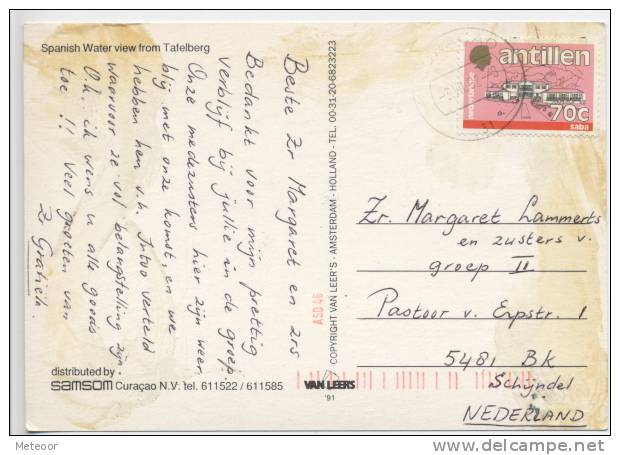 Spanish Water view from Tafelberg
Beste Zr Margaret en zrs
Bedankt voor mijn prettig
verblijf bij jullie in de groep.
Onze medezusters hier zijn weer
blij met onze komst, en we
hebben hen v.h. Intvo verteld
waarvoor ze vol belangstelling zijn.
O.k. ik wens u alle goeds
toe !! Veel groeten van
Zr
distributed by
samsom Curaçao N.V. tel. 611522 / 611585
© COPYRIGHT VAN LEER'S - AMSTERDAM - HOLLAND - TEL. 00-31-20-6823223
ASD 46
VAN LEERS
'91
nederlandse
antillen
70c
saba
Zr. Margaret Lammerts
en zusters v.
groep II
Pastoor v. Erpstr. 1
5481 BK
Schijndel
NEDERLAND
Meteoor